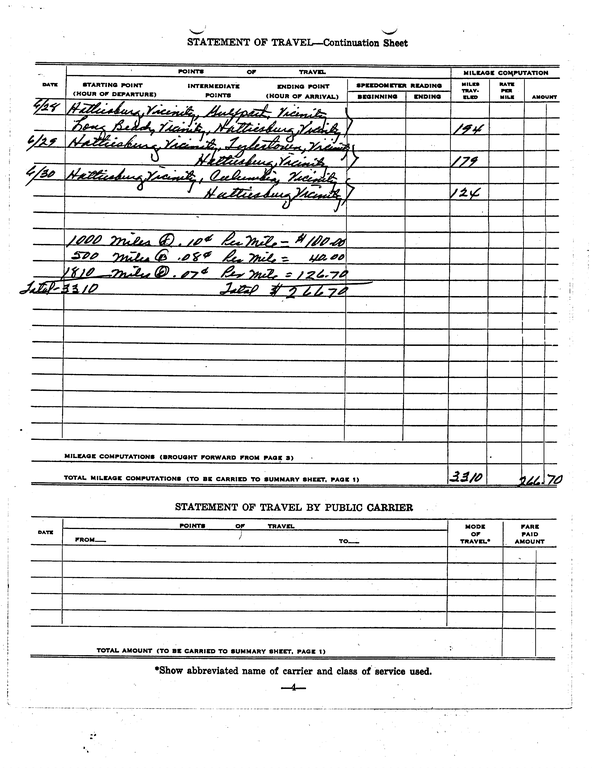 STATEMENT OF TRAVEL—Continuation Sheet
POINTS OF TRAVEL MILEAGE COMPUTATION
DATE STARTING POINT INTERMEDIATE ENDING POINT SPEEDOMETER READING MILES RATE
(HOUR OF DEPARTURE) POINTS (HOUR OF ARRIVAL) BEGINNING ENDING TRAV- PER AMOUNT
ELED MILE
6/28 Hattiesburg, Vicinity, Gulfport, Vicinity
Long Beach, Vicinity, Hattiesburg Vicinity 194
6/29 Hattiesburg Vicinity, Tylertown, Vicinity
Hattiesburg, Vicinity 179
6/30 Hattiesburg Vicinity, Columbia, Vicinity
Hattiesburg Vicinity 124
1000 miles @ .10¢ Per Mile = $100.00
500 miles @ .08¢ Per Mile = 40.00
1810 miles @ .07¢ Per Mile = 126.70
Total-3310 Total $266.70
MILEAGE COMPUTATIONS (BROUGHT FORWARD FROM PAGE 3)
TOTAL MILEAGE COMPUTATIONS (TO BE CARRIED TO SUMMARY SHEET, PAGE 1) 3310 266.70
STATEMENT OF TRAVEL BY PUBLIC CARRIER
POINTS OF TRAVEL MODE FARE
DATE OF PAID
FROM TO TRAVEL* AMOUNT
TOTAL AMOUNT (TO BE CARRIED TO SUMMARY SHEET, PAGE 1)
*Show abbreviated name of carrier and class of service used.
—4—